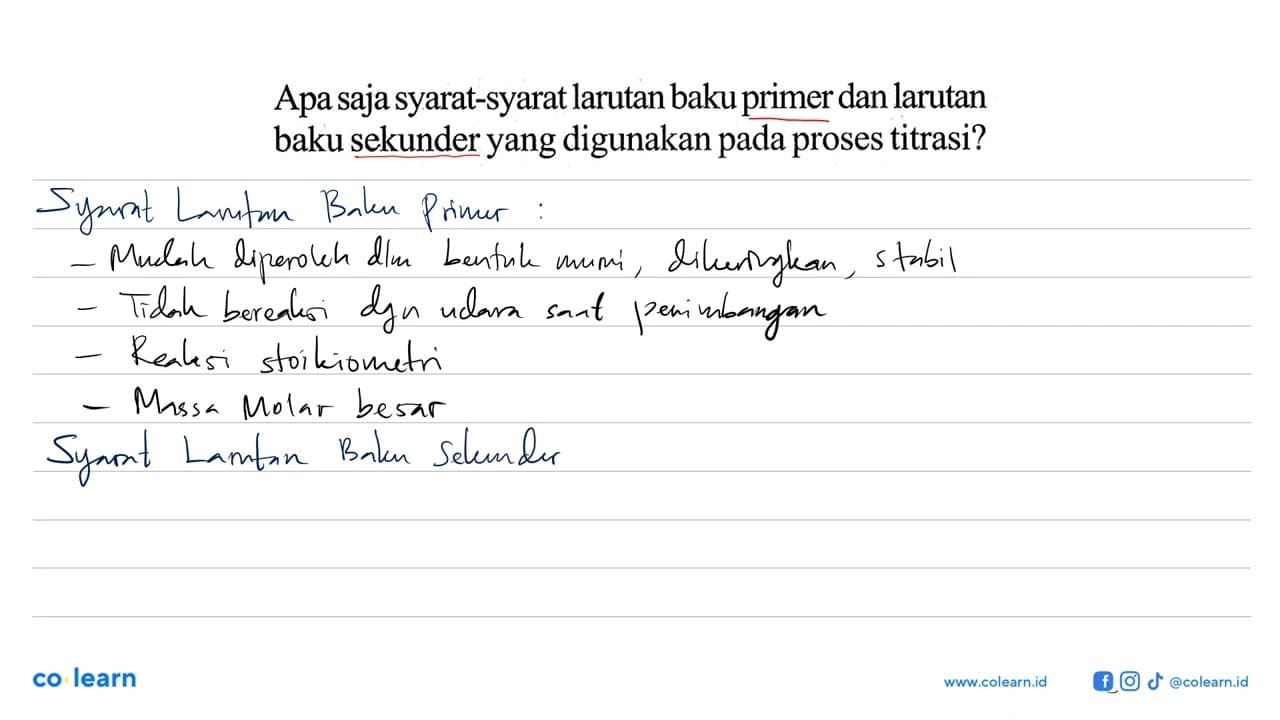 Apa saja syarat-syarat larutan baku primer dan larutan
baku sekunder yang digunakan pada proses titrasi?
Syarat Larutan Baku Primer :
– Mudah diperoleh dlm bentuk murni, dikeringkan, stabil
– Tidak bereaksi dgn udara saat penimbangan
– Reaksi stoikiometri
– Massa Molar besar
Syarat Larutan Baku Sekunder
co learn
www.colearn.id
@colearn.id